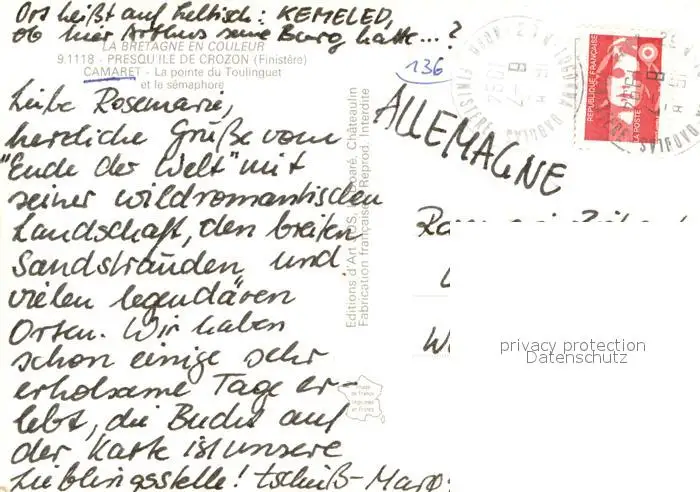 Ort heißt auf keltisch: KEMELED,
ob hier Arthus seine Burg hatte...?
LA BRETAGNE EN COULEUR
9.1118 - PRESQU'ILE DE CROZON (Finistère)
CAMARET - La pointe du Toulinguet
et le sémaphore
136
Liebe Rosemarie,
herzliche Grüße vom
"Ende der Welt" mit
seiner wildromantischen
Landschaft, den breiten
Sandstränden und
vielen legendären
Orten. Wir haben
schon einige sehr
erholsame Tage er-
lebt, die Bucht auf
der Karte ist unsere
Lieblingsstelle! tschüß-
Editions d'Art JOS, Châteaulin
Fabrication française Reprod. Interdite
Image
de France
Imprimée
en France
REPUBLIQUE FRANÇAISE
LA POSTE
FINISTERE
ALLEMAGNE
privacy protection
Datenschutz